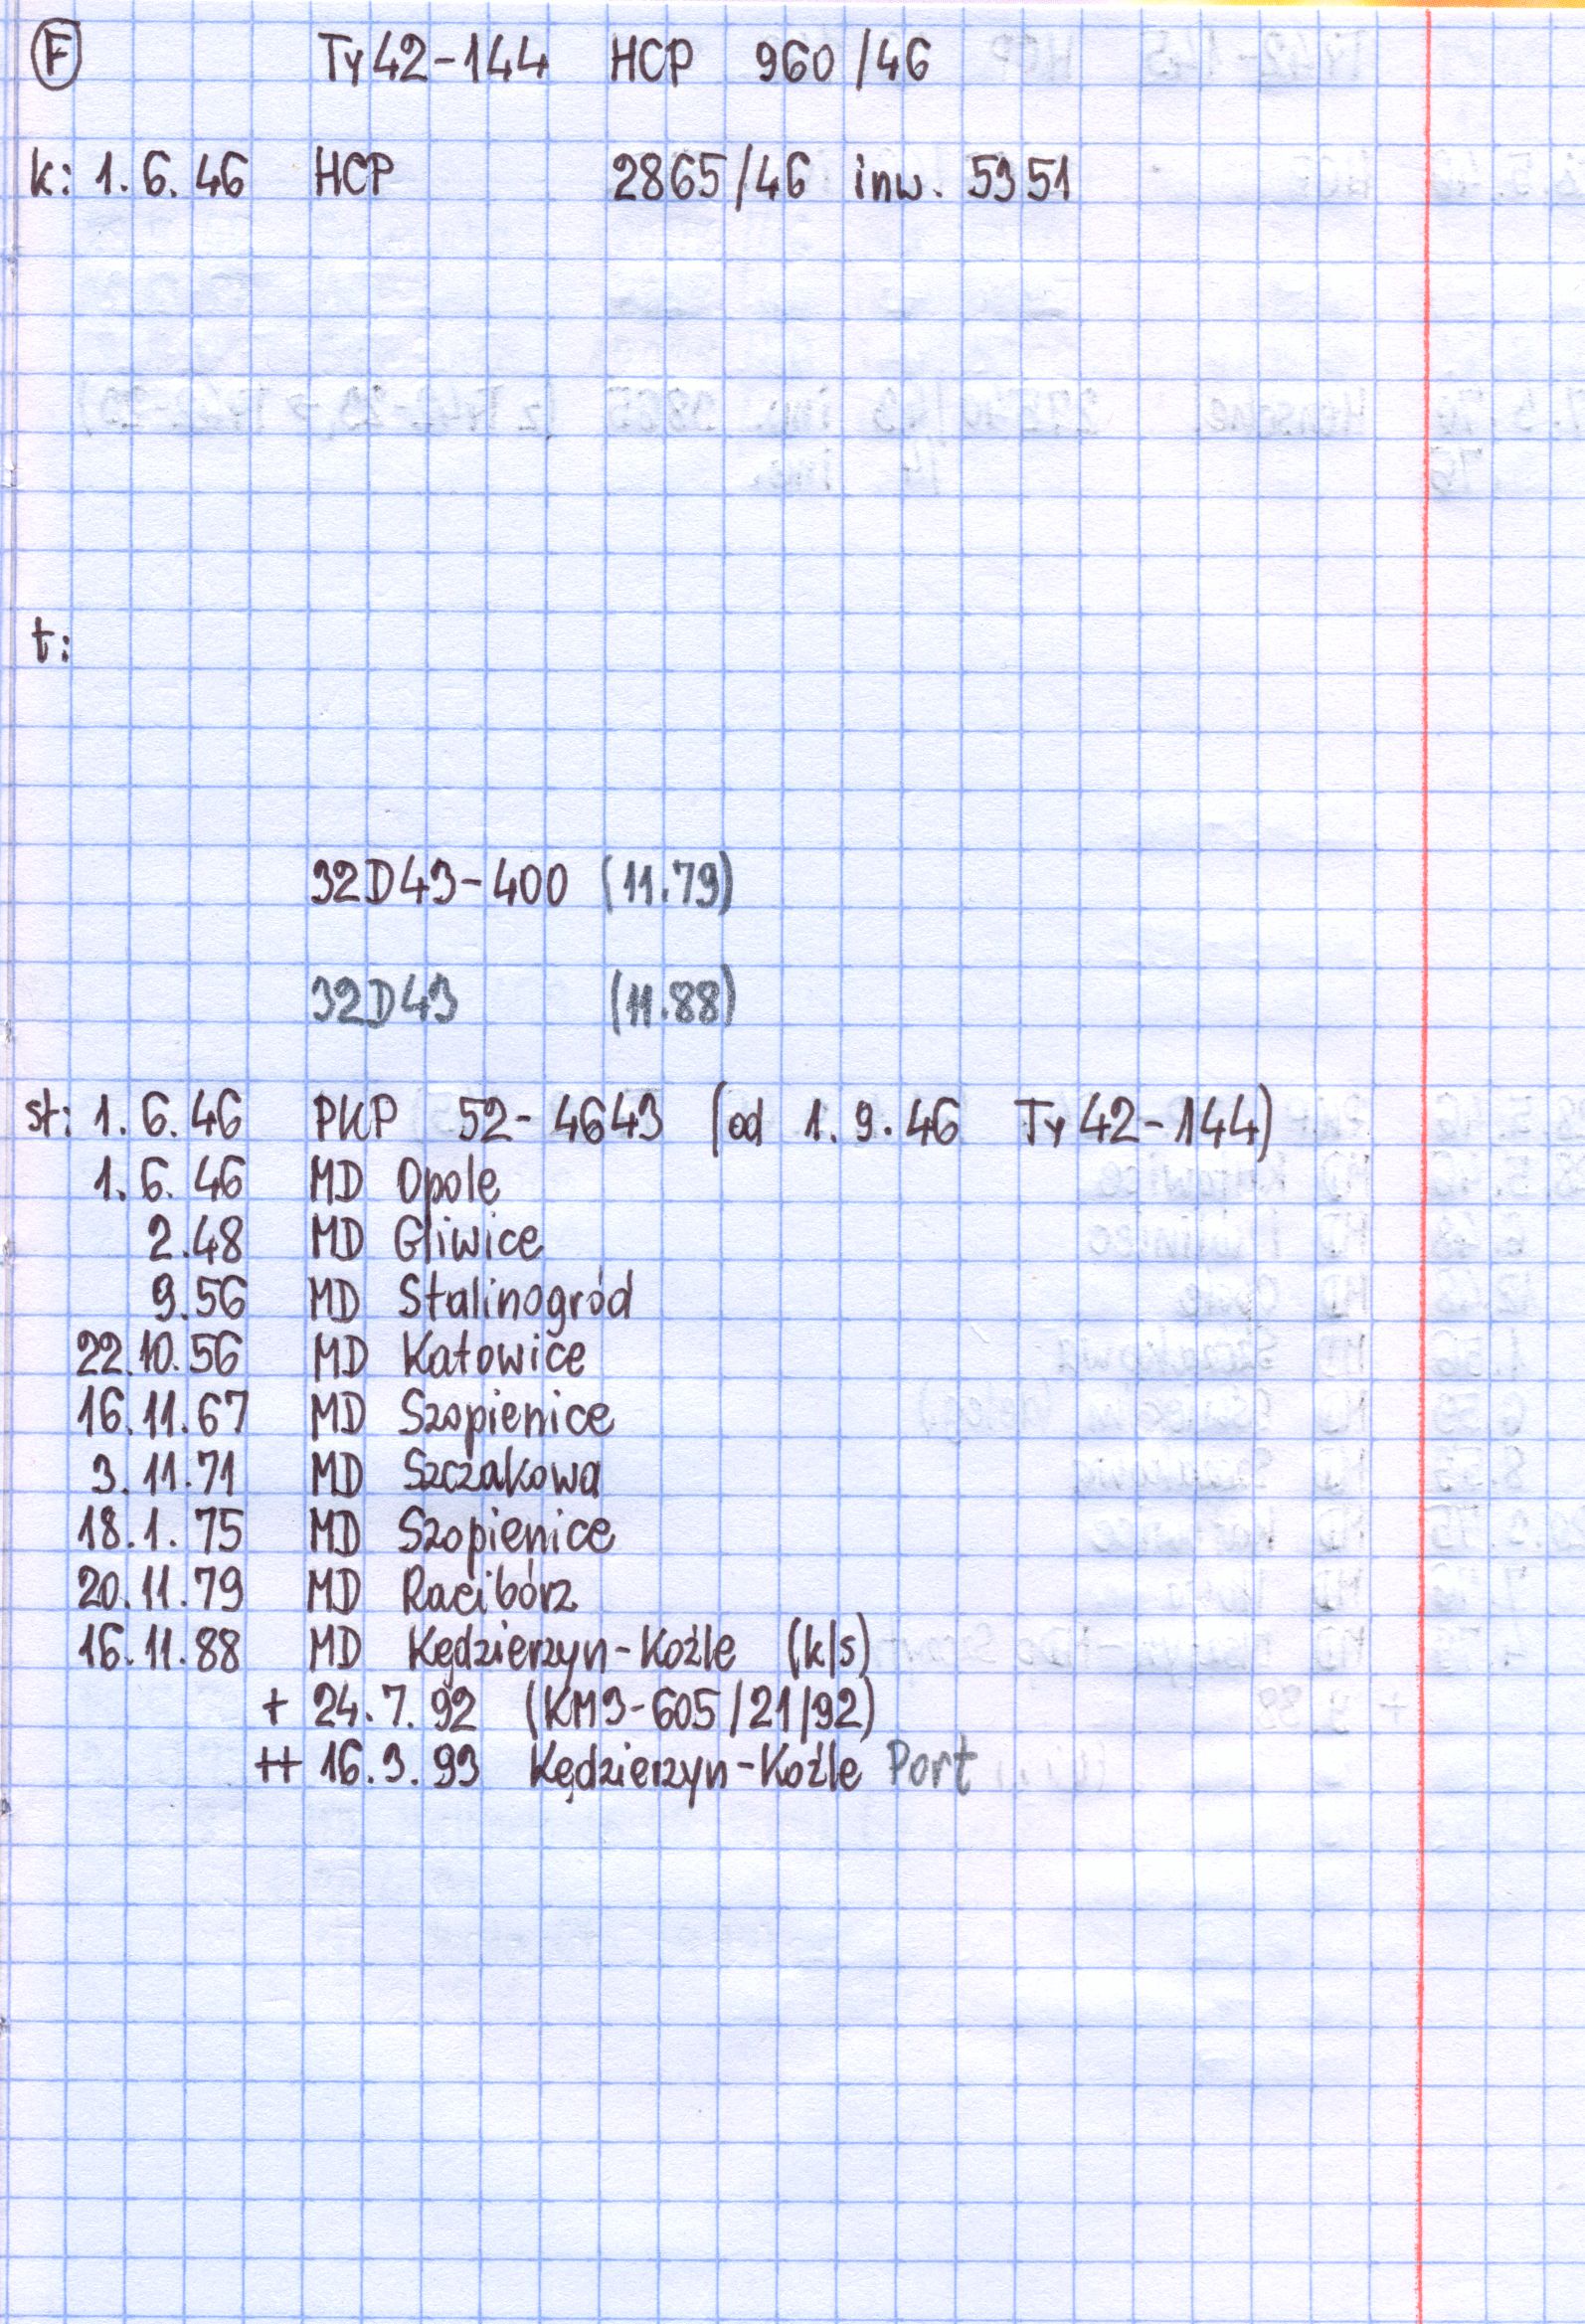 F Ty42-144 HCP 960/46
k: 1.6.46 HCP 2865/46 inw. 5351
t:
32D43-400 (11.79)
32D43 (11.88)
st: 1.6.46 PKP 52-4643 (od 1.9.46 Ty42-144)
1.6.46 MD Opole
2.48 MD Gliwice
9.56 MD Stalinogród
22.10.56 MD Katowice
16.11.67 MD Szopienice
3.11.71 MD Szczakowa
18.1.75 MD Szopienice
20.11.79 MD Racibórz
16.11.88 MD Kędzierzyn-Koźle (k/s)
+ 24.7.92 (KM3-605/21/92)
++ 16.3.93 Kędzierzyn-Koźle Port